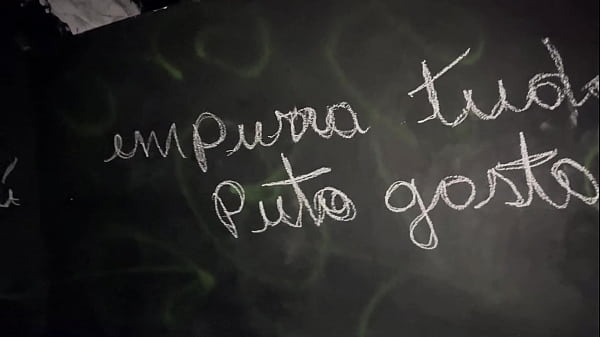 empurra tudo
Puto gosto